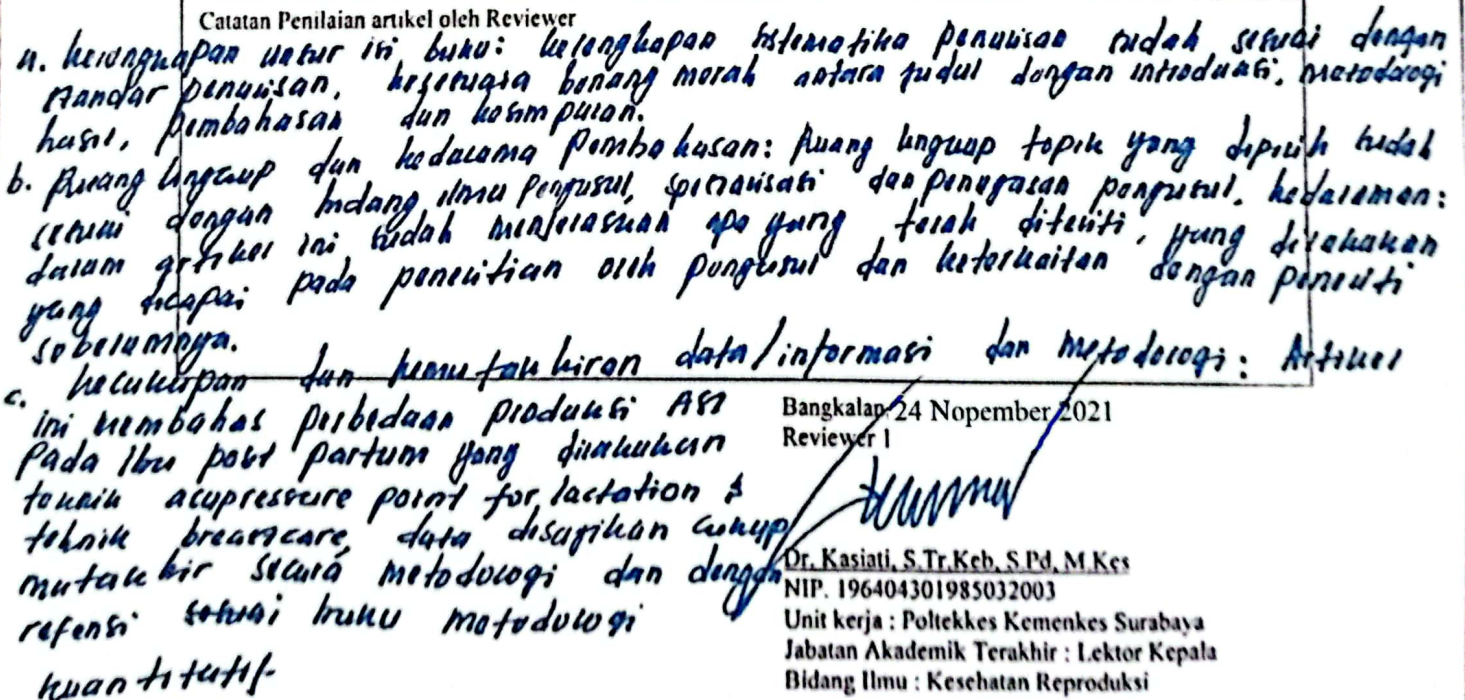 Catatan Penilaian artikel oleh Reviewer
a. kelengkapan unsur isi buku: kelengkapan sistematika penulisan sudah sesuai dengan
standar penulisan, kesesuaia benang merah antara judul dengan introduksi, metodologi
hasil, pembahasan dan kesimpulan.
b. Ruang lingkup dan kedalama Pembahasan: Ruang lingkup topik yang dipilih sudah
sesuai dengan bidang ilmu Pengusul, spesialisasi dan penugasan pengusul. kedalaman:
dalam artikel ini sudah menjelaskan apa yang telah diteliti, yang dilakukan
yang dicapai pada penelitian oleh pengusul dan keterkaitan dengan peneliti
sebelumnya.
c. kecukupan dan kemutakhiran data/informasi dan metodologi: Artikel
ini membahas perbedaan produksi ASI
Pada Ibu post partum yang dilakukan
teknik acupressure point for lactation &
tehnik breastcare, data disajikan cukup
mutakhir secara metodologi dan dengan
refensi sesuai buku metodologi
kuantitatif.
Bangkalan, 24 Nopember 2021
Reviewer 1
Dr. Kasiati, S.Tr.Keb, S.Pd, M.Kes
NIP. 196404301985032003
Unit kerja : Poltekkes Kemenkes Surabaya
Jabatan Akademik Terakhir : Lektor Kepala
Bidang Ilmu : Kesehatan Reproduksi